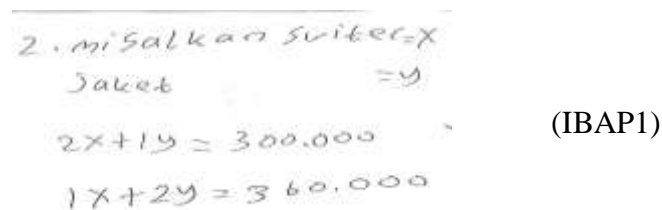 2. misalkan sviter=x
Jaket =y
2x+1y = 300.000
1x+2y = 360.000
(IBAP1)